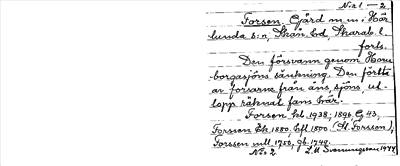 No 1 — 2
Forsen. Gård m. m. i Hår
lunda s:n, Skån. hd, Skarab. l.
forts.
Den försvann genom Horn
borgasjöns sänkning. Den förtta
av forsarne från åns, sjöns, ut-
lopp räknat fans här.
Forsen kl. 1938, 1896 Ej 43,
Forssen Ek 1880, Hfl 1800 (St. Forssen),
Forssen mtl. 1750, gb 1749.
No 2. Svenningsson 1944